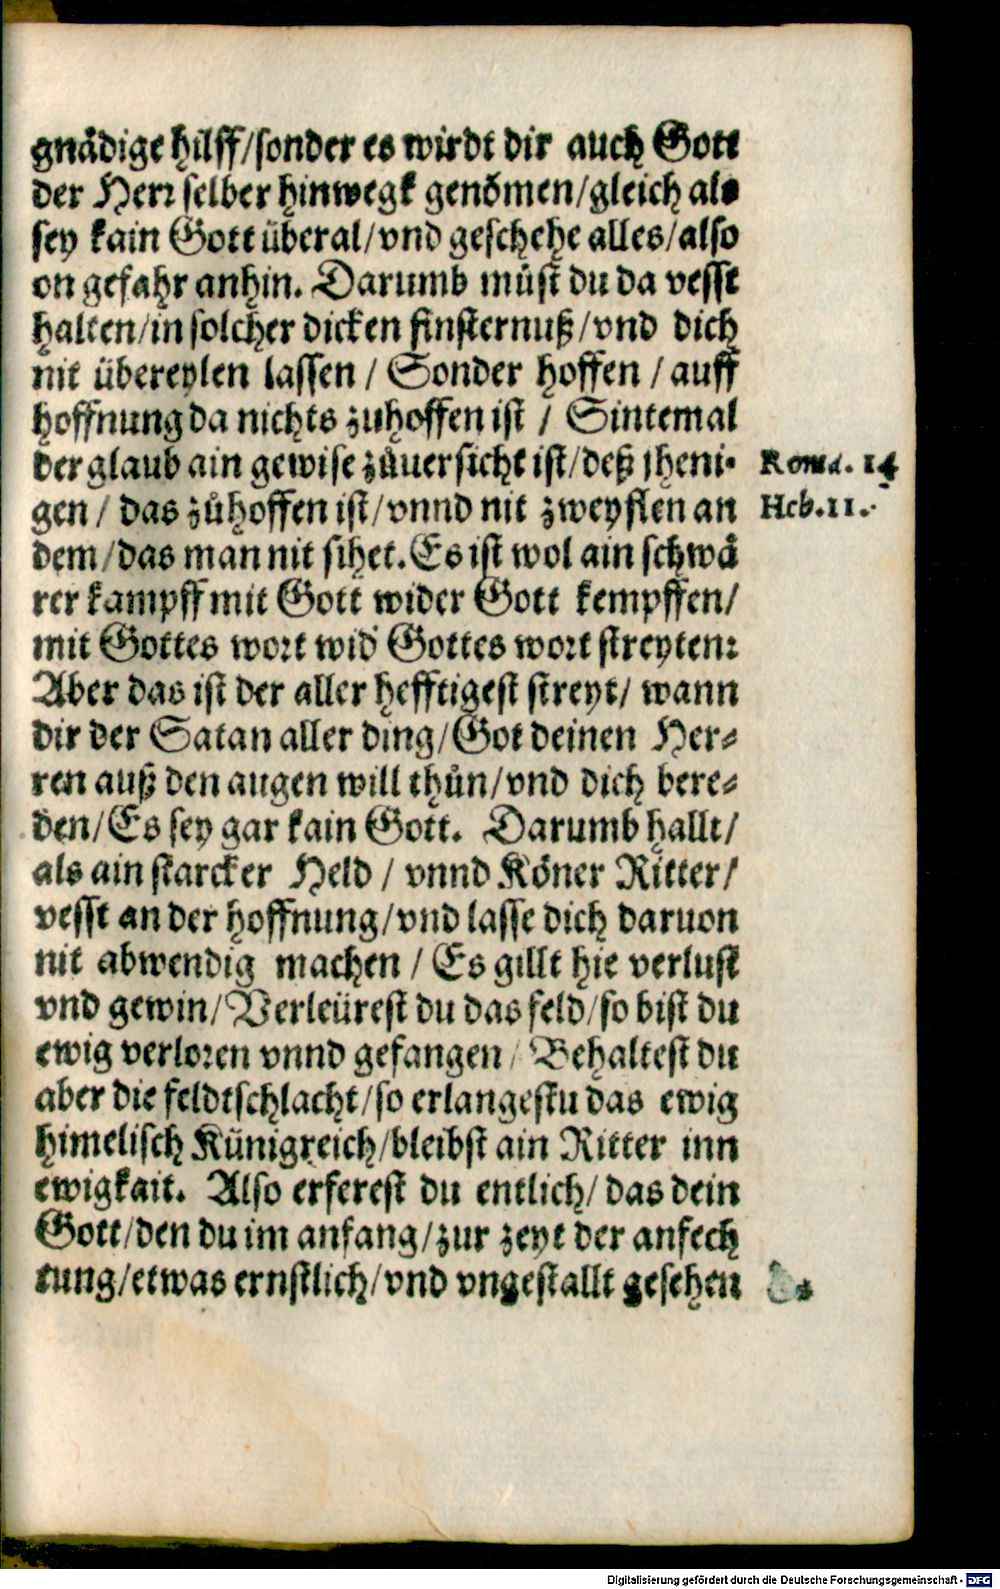 gnädige hilff/sonder es wirdt dir auch Gott
der Herr selber hinwegk genom̃en/gleich als
sey kain Gott überal/vnd geschehe alles/also
on gefahr anhin. Darumb müst du da vesst
halten/in solcher dicken finsternuß/vnd dich
nit übereylen lassen / Sonder hoffen / auff
hoffnung da nichts zuhoffen ist / Sintemal
der glaub ain gewise zůuersicht ist/deß jheni-
Roma. 14
gen / das zůhoffen ist/vnnd nit zweyflen an
Heb. 11.
dem/das man nit sihet. Es ist wol ain schwå
rer kampff mit Gott wider Gott kempffen/
mit Gottes wort wid' Gottes wort streyten:
Aber das ist der aller hefftigest streyt/ wann
dir der Satan aller ding/Got deinen Her-
ren auß den augen will thůn/vnd dich bere-
den/Es sey gar kain Gott. Darumb hallt/
als ain starcker Held / vnnd Köner Ritter/
vesst an der hoffnung/vnd lasse dich daruon
nit abwendig machen / Es gillt hie verlust
vnd gewin/Verleürest du das feld/so bist du
ewig verloren vnnd gefangen/ Behaltest du
aber die feldtschlacht/so erlangestu das ewig
himelisch Künigreich/bleibst ain Ritter inn
ewigkait. Also erferest du entlich/das dein
Gott/den du im anfang/zur zeyt der anfech
tung/etwas ernstlich/vnd vngestallt gesehen
Digitalisierung gefördert durch die Deutsche Forschungsgemeinschaft - DFG